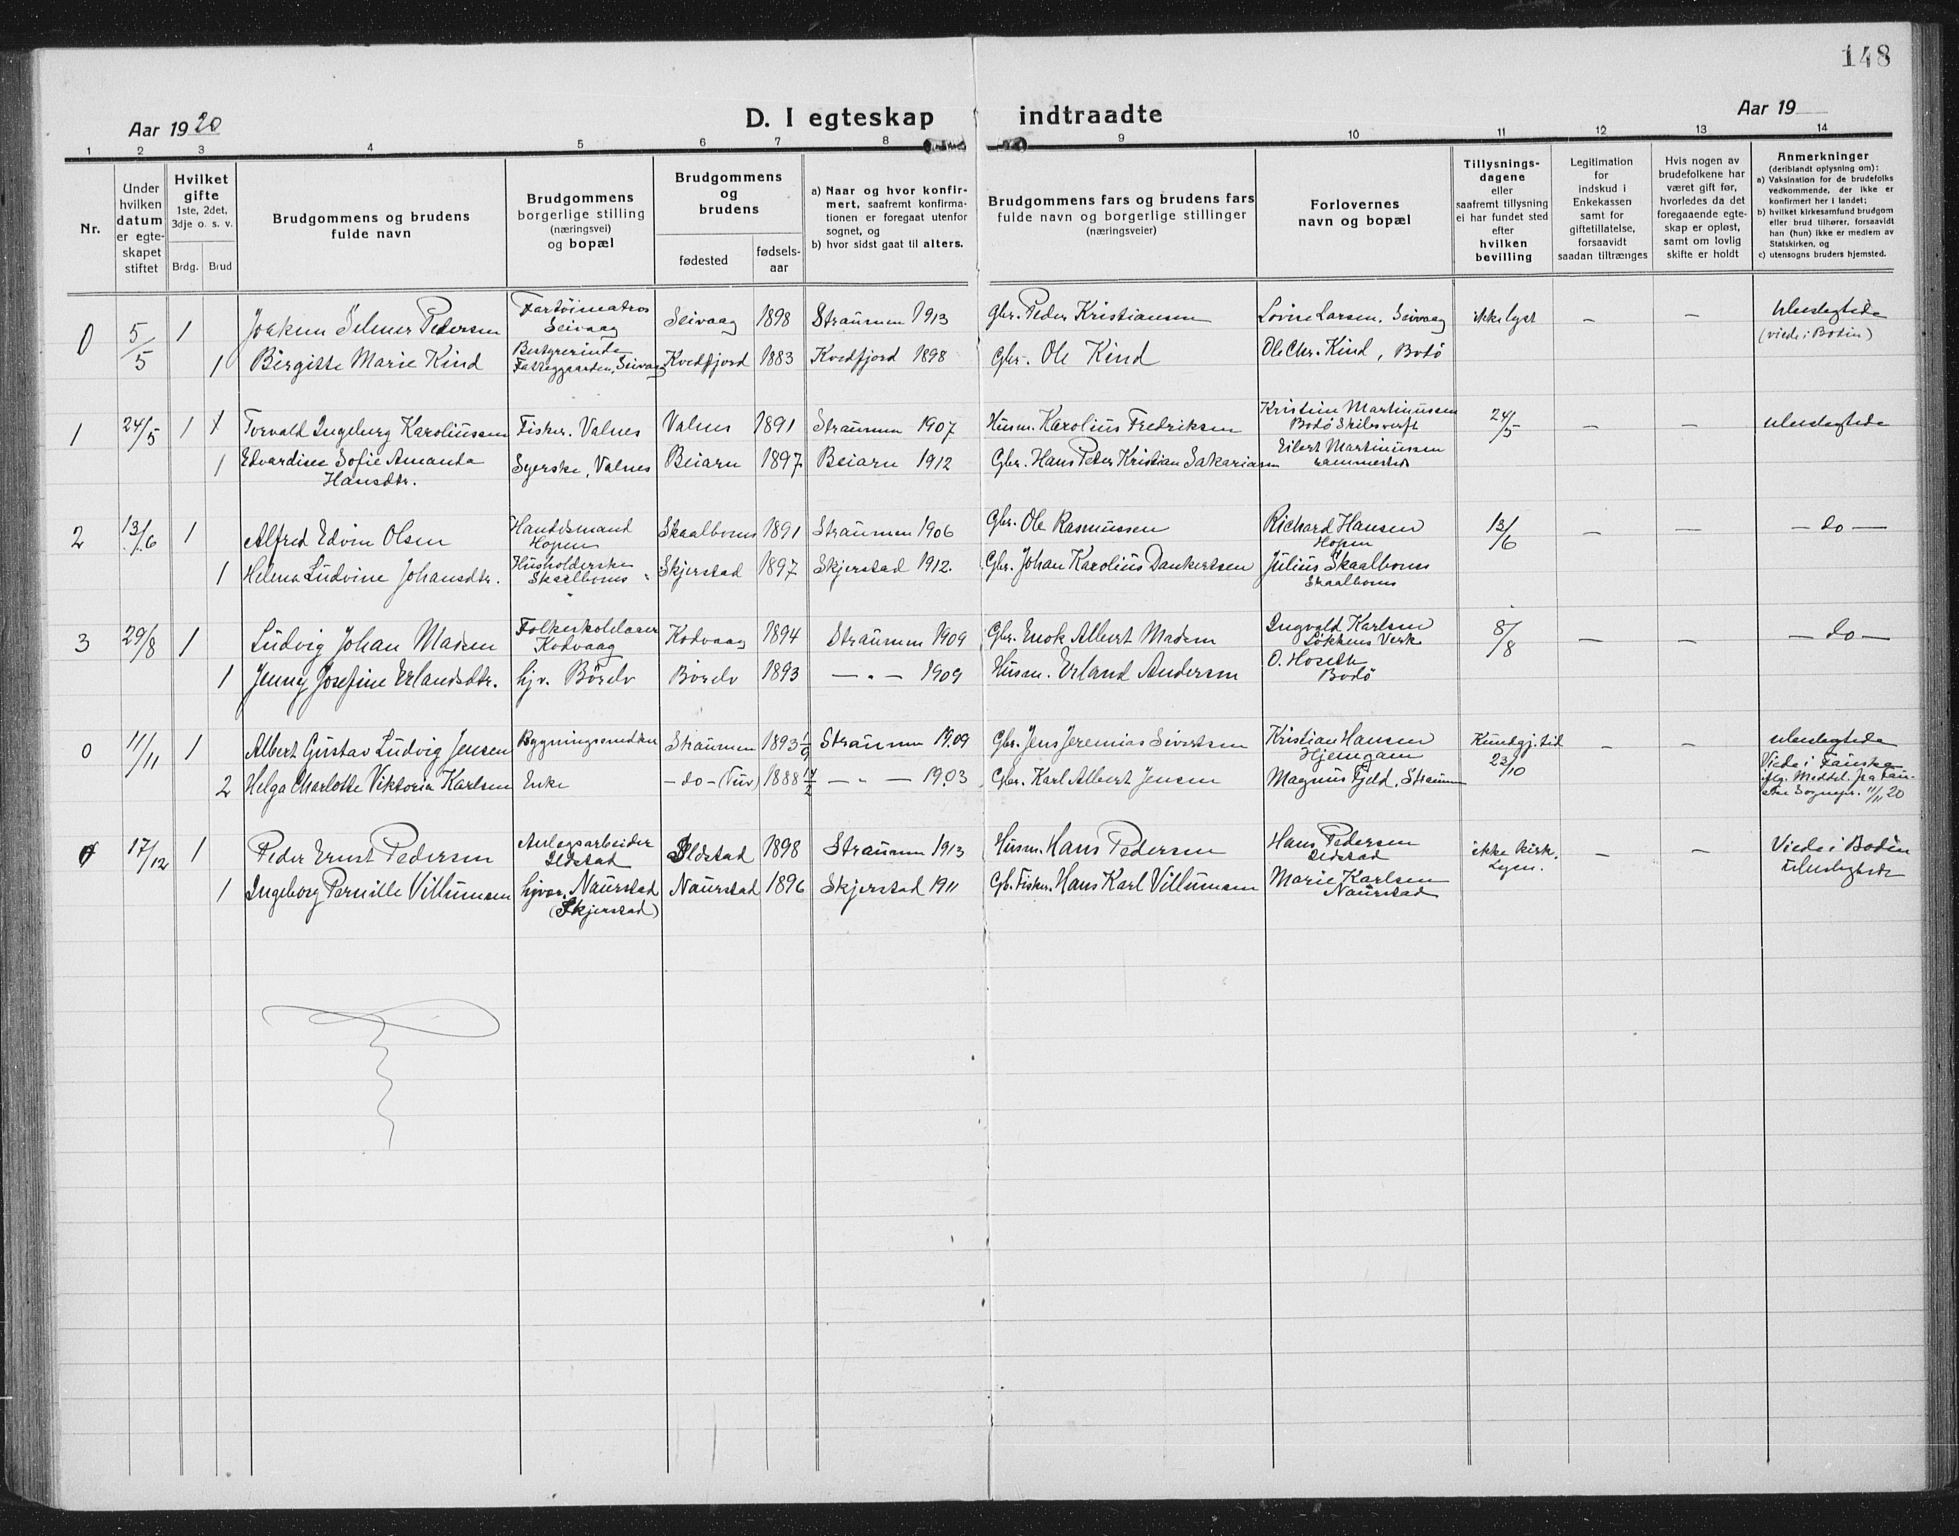 148
Aar 1920
D. I egteskap indtraadte
Aar 19
1 2 3 4 5 6 7 8 9 10 11 12 13 14
Nr.
Under
hvilken
datum
er egte-
skapet
stiftet
Hvilket
gifte
1ste, 2det,
3dje o. s. v.
Brdg. Brud
Brudgommens og brudens
fulde navn
Brudgommens
borgerlige stilling
(næringsvei)
og bopæl
Brudgommens
og
brudens
fødested
fødsels-
aar
a) Naar og hvor konfir-
mert, saafremt konfirma-
tionen er foregaat utenfor
sognet, og
b) hvor sidst gaat til alters.
Brudgommens fars og brudens fars
fulde navn og borgerlige stillinger
(næringsveier)
Forlovernes
navn og bopæl
Tillysnings-
dagene
eller
saafremt tillysning
ei har fundet sted
efter
hvilken
bevilling
Legitimation
for
indskud i
Enkekassen
samt for
giftetillatelse,
forsaavidt
saadan tiltrænges
Hvis nogen av
brudefolkene har
været gift før,
hvorledes da det
foregaaende egte-
skap er opløst,
samt om lovlig
skifte er holdt
Anmerkninger
(deriblandt oplysning om):
a) Vaksination for de brudefolks
vedkommende, der ikke er
konfirmert her i landet;
b) hvilket kirkesamfund brudgom
eller brud tilhører, forsaavidt
han (hun) ikke er medlem av
Statskirken, og
c) utensogns bruders hjemsted.
0 5/5 1 Joakim Selmer Pedersen Fartöimatros Seivaag Seivaag 1898 Straumen 1913 Gbr. Peder Kristiansen Lovise Larsen, Seivaag ikke lyst — — ubeslegtede
(viede i Bodin)
1 Birgitte Marie Kind Bestyrerinde Seivaag Kvedfjord 1883 Kvedfjord 1898 Gbr. Ole Kind Ole Chr. Kind, Bodö
1 24/5 1 Torvald Ingeberg Karoliussen Fisker. Valnes Valnes 1891 Straumen 1907 Husm. Karolius Fredriksen Kristian Martinussen 24/5 — — ubeslegtede
Bodö Skibsverft
1 Edvardine Sofie Amanda Syerske, Valnes Beiarn 1897 Beiarn 1912 Gbr. Hans Peter Kristian Sakariassen Eilert Martinussen
Hansdtr. sammesteds
2 13/6 1 Alfred Edvin Olsen Handelsmand Hopen Skaalbones 1891 Straumen 1906 Gbr. Ole Rasmussen Richard Hansen 13/6 — — — do —
Hopen
1 Helena Ludvine Johansdtr. Husholderske Skaalbones Skjerstad 1897 Skjerstad 1912. Gbr. Johan Karolius Dankertsen Julius Skaalbones
Skaalbones
3 29/8 1 Ludvig Johan Madsen Folkeskolelærer Kodvaag Kodvaag 1894 Straumen 1909 Gbr. Enok Albert Madsen Ingvald Karlsen 8/8 — — — do —
Løkkens Verk
1 Jenny Josefine Erlandsdtr. hjv. Börelv Börelv 1893 — " — 1909 Husm. Erland Andersen O. Hoseth
Bodö
0 11/11 1 Albert Gustav Ludvig Jensen Straumen 1893 1/9 Straumen 1909 Gbr. Jens Jeremias Sivertsen Kristian Hansen Kundgj. tid — — ubeslegtede
Hjemgam 23/10
2 Helga Charlotte Viktoria Karlsen Enke — do — (Tuv) 1888 14/2 — " — 1903 Gbr. Karl Albert Jensen Magnus Fjeld, Straumen Viede i Fauske
iflg. Meddel. fra Fau-
ske Sognepr. 11/11 20
0 17/12 1 Peder Ernst Pedersen Anlegsarbeider Ildstad Ildstad 1898 Straumen 1913 Husm. Hans Pedersen Hans Pedersen ikke kirk. — — Viede i Bodin
Ildstad Lysn. Ubeslegtede
1 Ingeborg Pernille Villumsen hjvær. Naurstad Naurstad 1896 Skjerstad 1911 Gb. Fisker. Hans Karl Villumsen Marie Karlsen
(Skjerstad) Naurstad